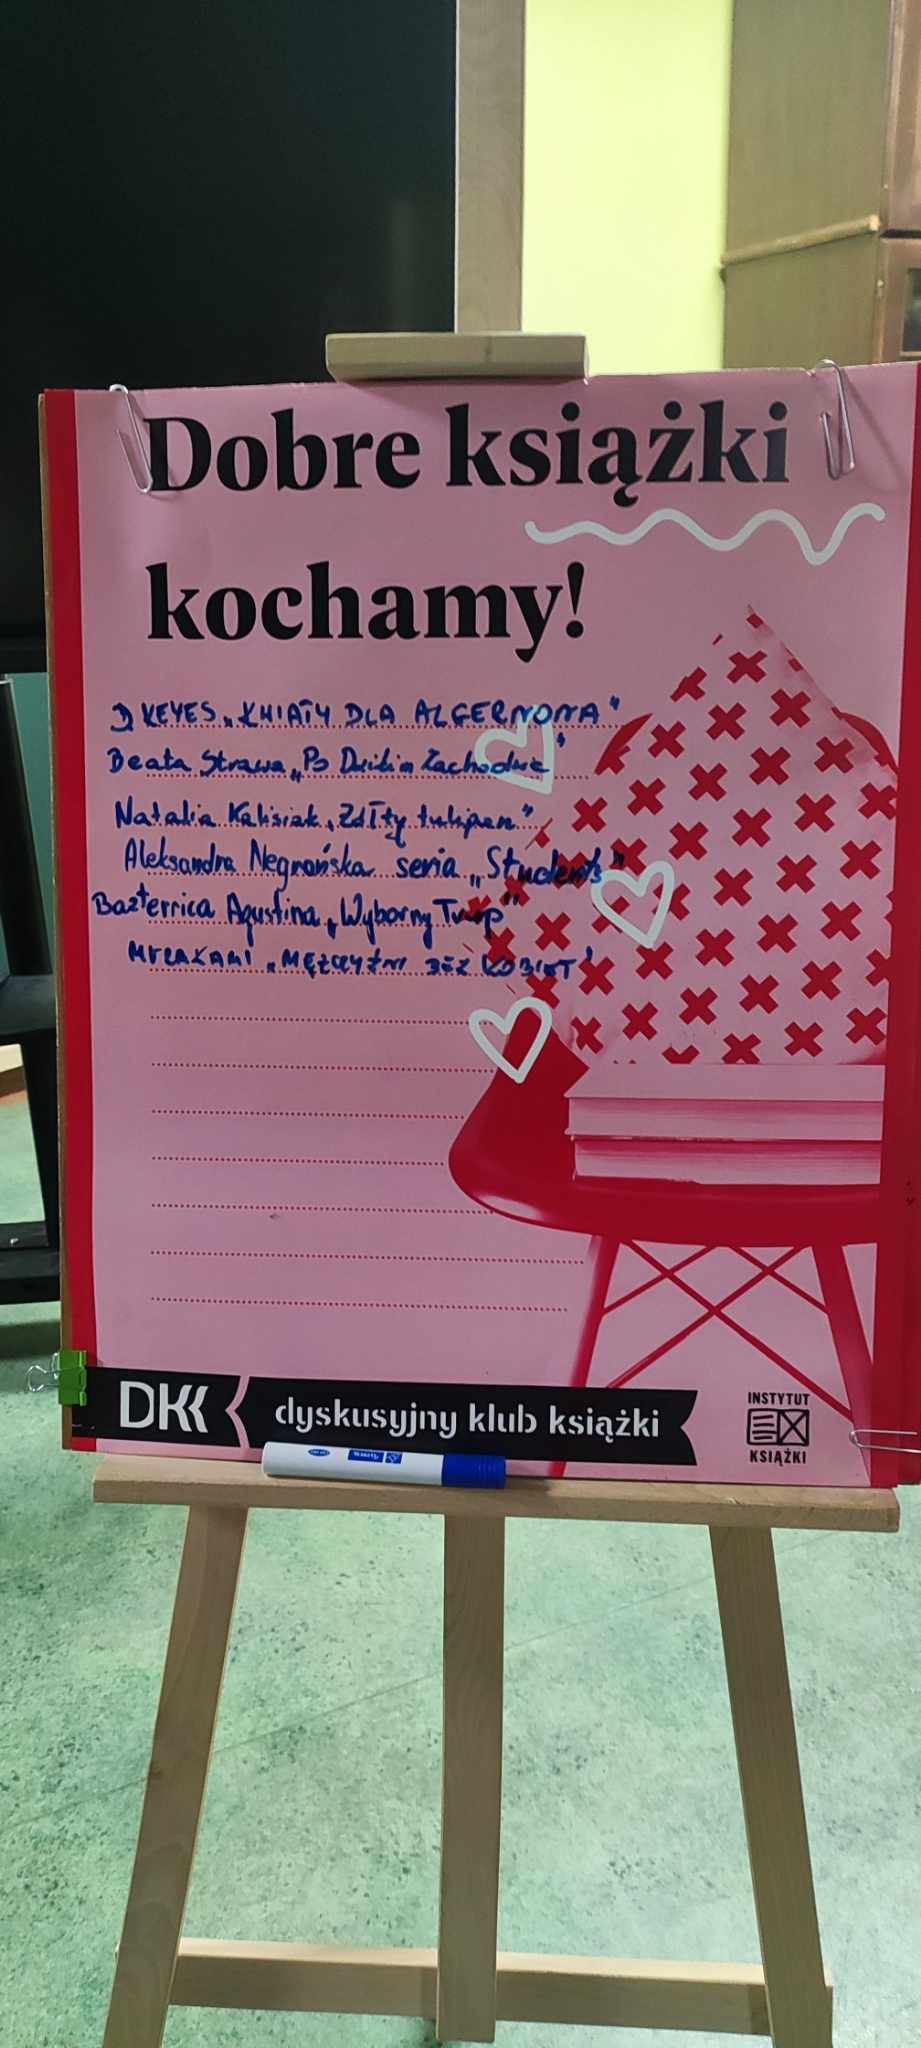 Dobre książki
kochamy!
D. KEYES „KWIATY DLA ALGERNONA"
Beata Strawa „Po Dzikim Zachodzie"
Natalia Kalisiak „Żółty tulipan"
Aleksandra Negrońska seria „Students"
Bazterrica Agustina „Wyborny Trup"
MURAKAMI „MĘŻCZYŹNI BEZ KOBIET"
DKK dyskusyjny klub książki
INSTYTUT
KSIĄŻKI